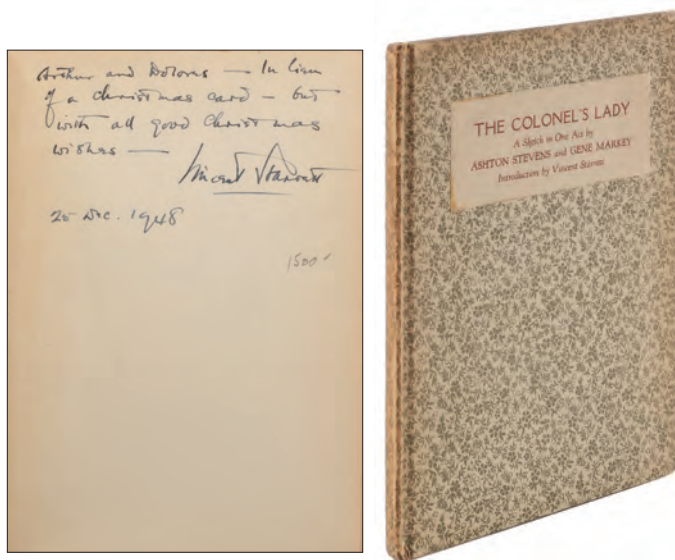 Arthur and Dolores — In lieu
of a christmas card — but
with all good Christmas
wishes —
Vincent Starrett
25 Dec. 1948
1500
THE COLONEL'S LADY
A Sketch in One Act by
ASHTON STEVENS and GENE MARKEY
Introduction by Vincent Starrett